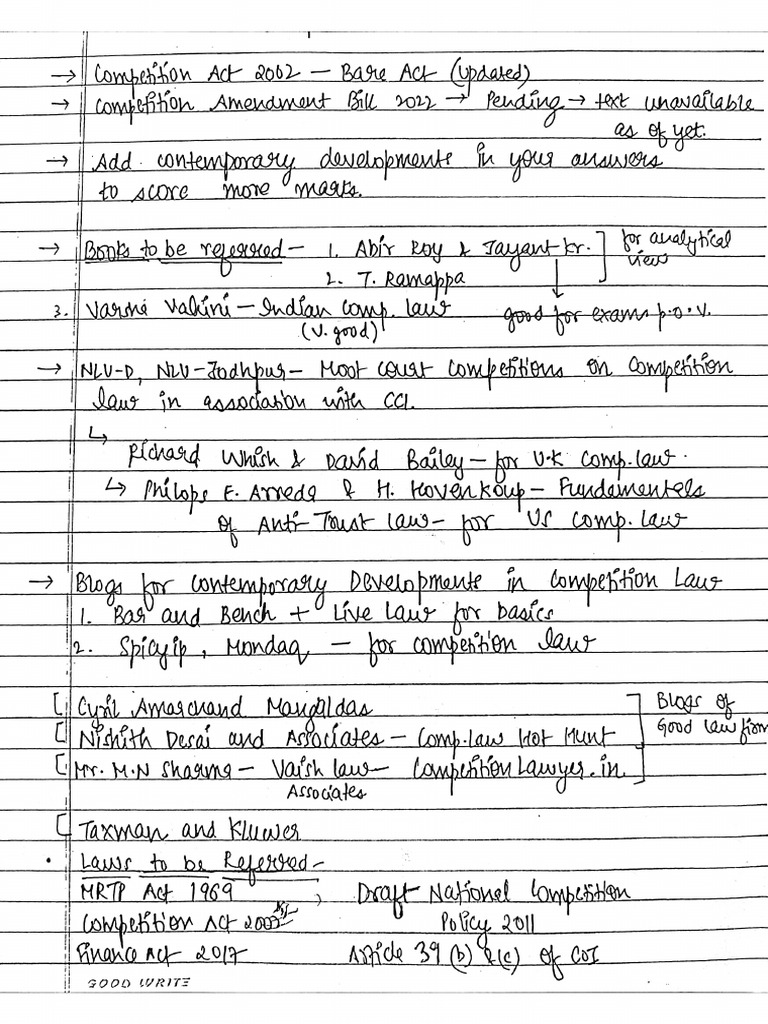 → Competition Act 2002 – Bare Act (Updated)
→ Competition Amendment Bill 2022 → Pending → text unavailable
as of yet.
→ Add contemporary developments in your answers
to score more marks.
→ Books to be referred – 1. Abir Roy & Jayant Kr. ] for analytical
view
2. T. Ramappa
3. Varsha Vahini – Indian Comp. law good for exams p.o.v.
(V. good)
→ NLU-D, NLU-Jodhpur – Moot Court Competitions on Competition
law in association with CCI.
↳ Richard Whish & David Bailey – for U.K Comp. law.
↳ Philops E. Areeda & H. Hovenkoup – Fundamentels
of Anti-Trust law – for US Comp. law
→ Blogs for Contemporary Developments in Competition Law
1. Bar and Bench + Live Law for basics
2. Spicyip, Mondaq – for competition law
[ Cyril Amarchand Mangaldas ] Blogs of
[ Nishith Desai and Associates – Comp. law Hot Hunt Good law firm
[ Mr. M.N Sharma – Vaish law – CompetitionLawyer.in
Associates
[ Taxman and Kluwer
• Laws to be Referred –
MRTP Act 1969 , Draft National Competition
Competition Act 2002 Policy 2011
Finance Act 2017 Article 39 (b) & (c) of CoI
GOOD WRITE